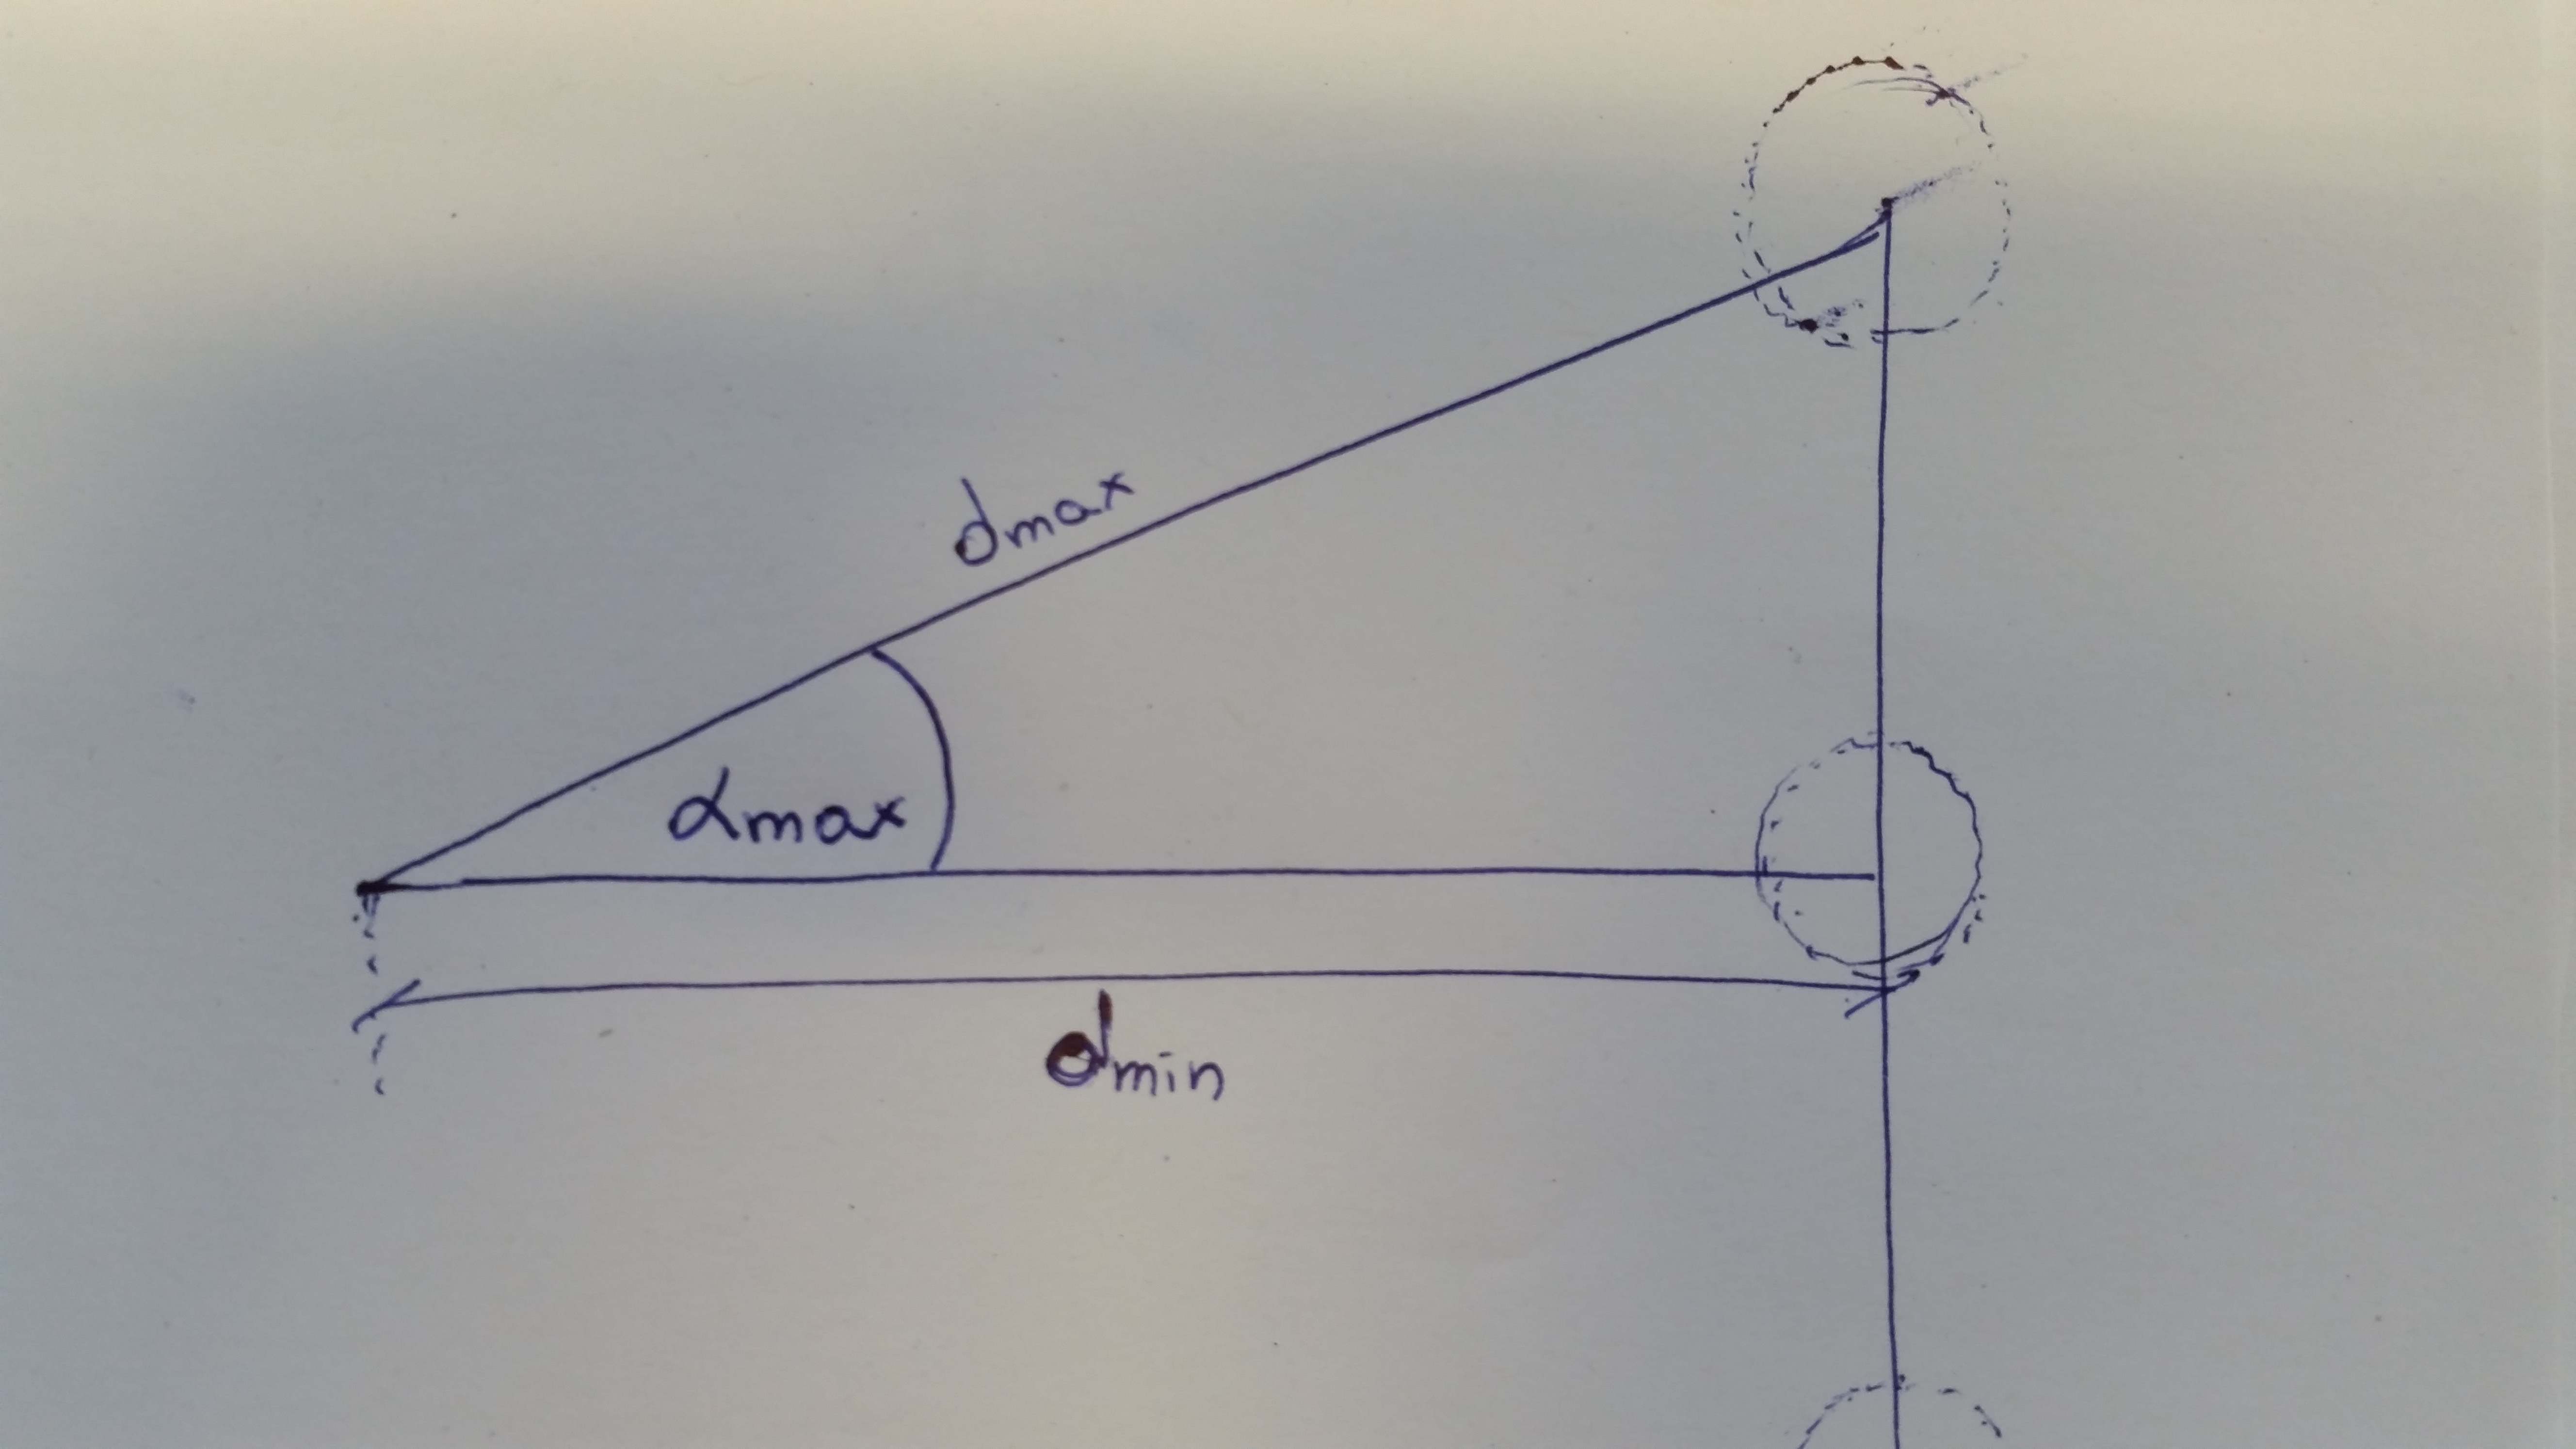 dmax
αmax
dmin